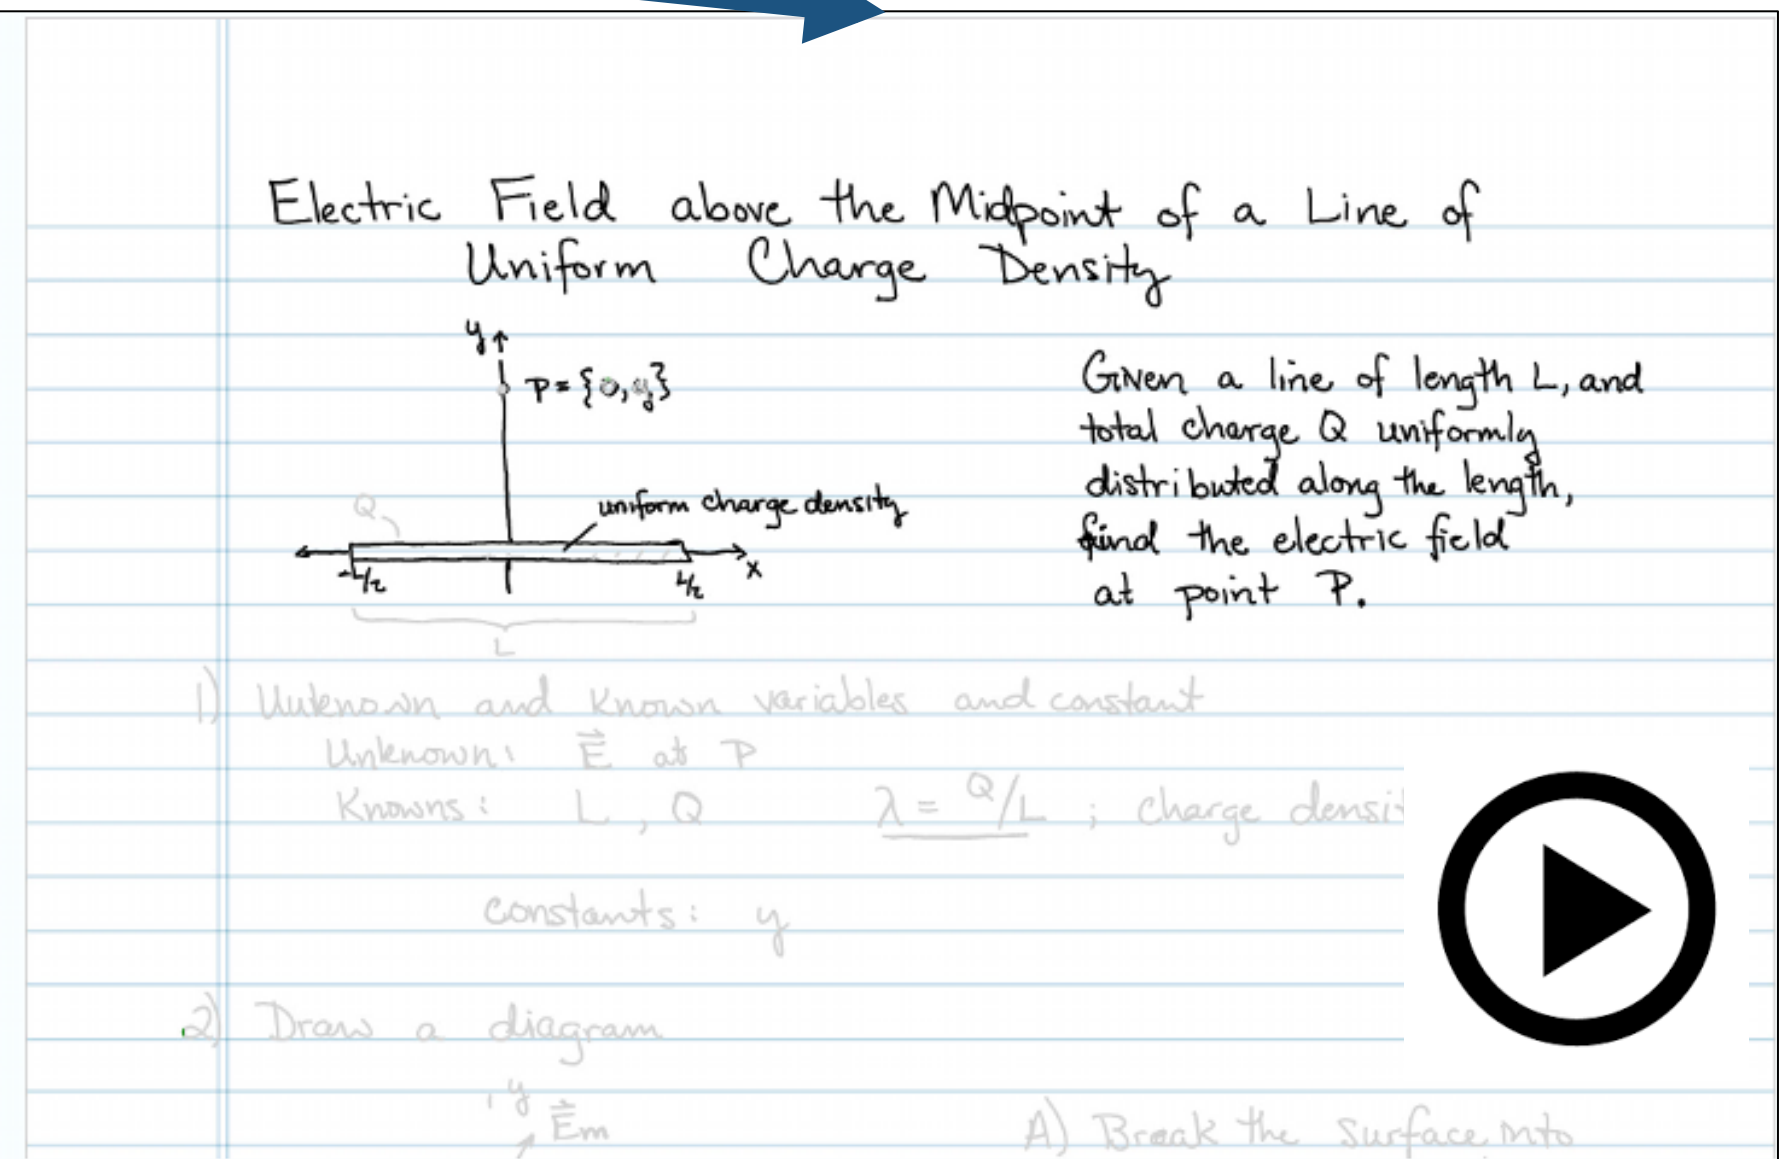 Electric Field above the Midpoint of a Line of
Uniform Charge Density
y
P = {0, y}
Given a line of length L, and
total charge Q uniformly
distributed along the length,
find the electric field
at point P.
Q
uniform charge density
-L/2
L/2
x
L
1) Unknown and Known variables and constant
Unknown: E⃗ at P
Knowns: L, Q λ = Q/L ; charge densit
constants: y
2) Draw a diagram
y
E⃗m
A) Break the surface into